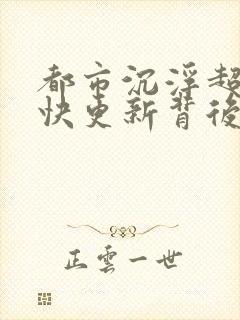 都市沉浮超
快更新背後
正雲一世